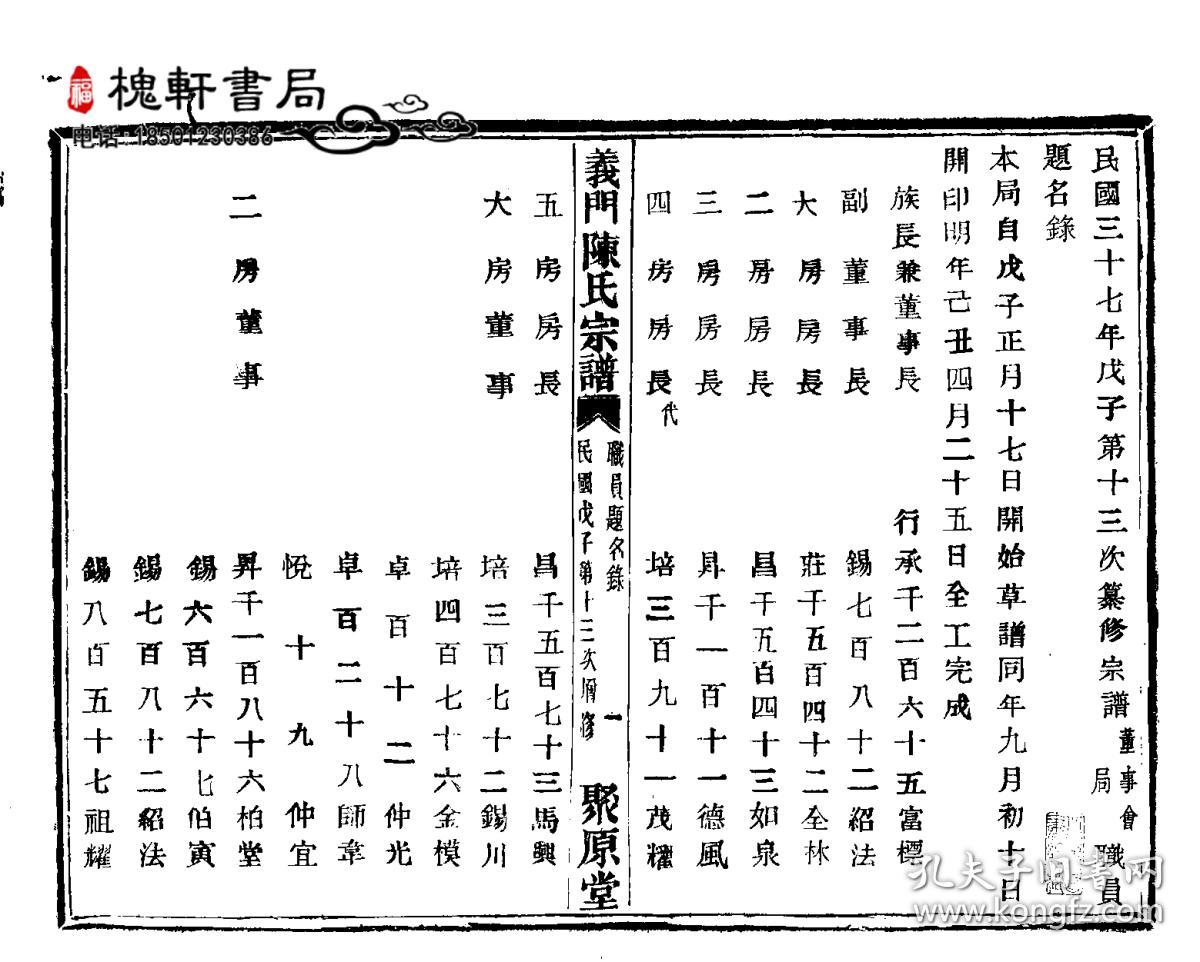 槐軒書局
福
电话：18501230386
民國三十七年戊子第十三次纂修宗譜董事會局職員
題名錄
本局自戊子正月十七日開始草譜同年九月初十日
開印明年己丑四月二十五日全工完成
族長兼董事長 行承千二百六十五富標
副董事長 錫七百八十二紹法
大房房長 莊千五百四十二全林
二房房長 昌千五百四十三如泉
三房房長 昇千一百十一德風
四房房長代 培三百九十一茂耀
義門陳氏宗譜 職員題名錄 民國戊子第十三次增修 一 聚原堂
五房房長 昌千五百七十三馬興
大房董事 培三百七十二錫川
培四百七十六金模
卓百十二仲光
卓百二十八師韋
悅十九仲宜
二房董事 昇千一百八十六柏堂
錫六百六十七伯寅
錫七百八十二紹法
錫八百五十七祖耀
孔夫子旧书网
www.kongfz.com